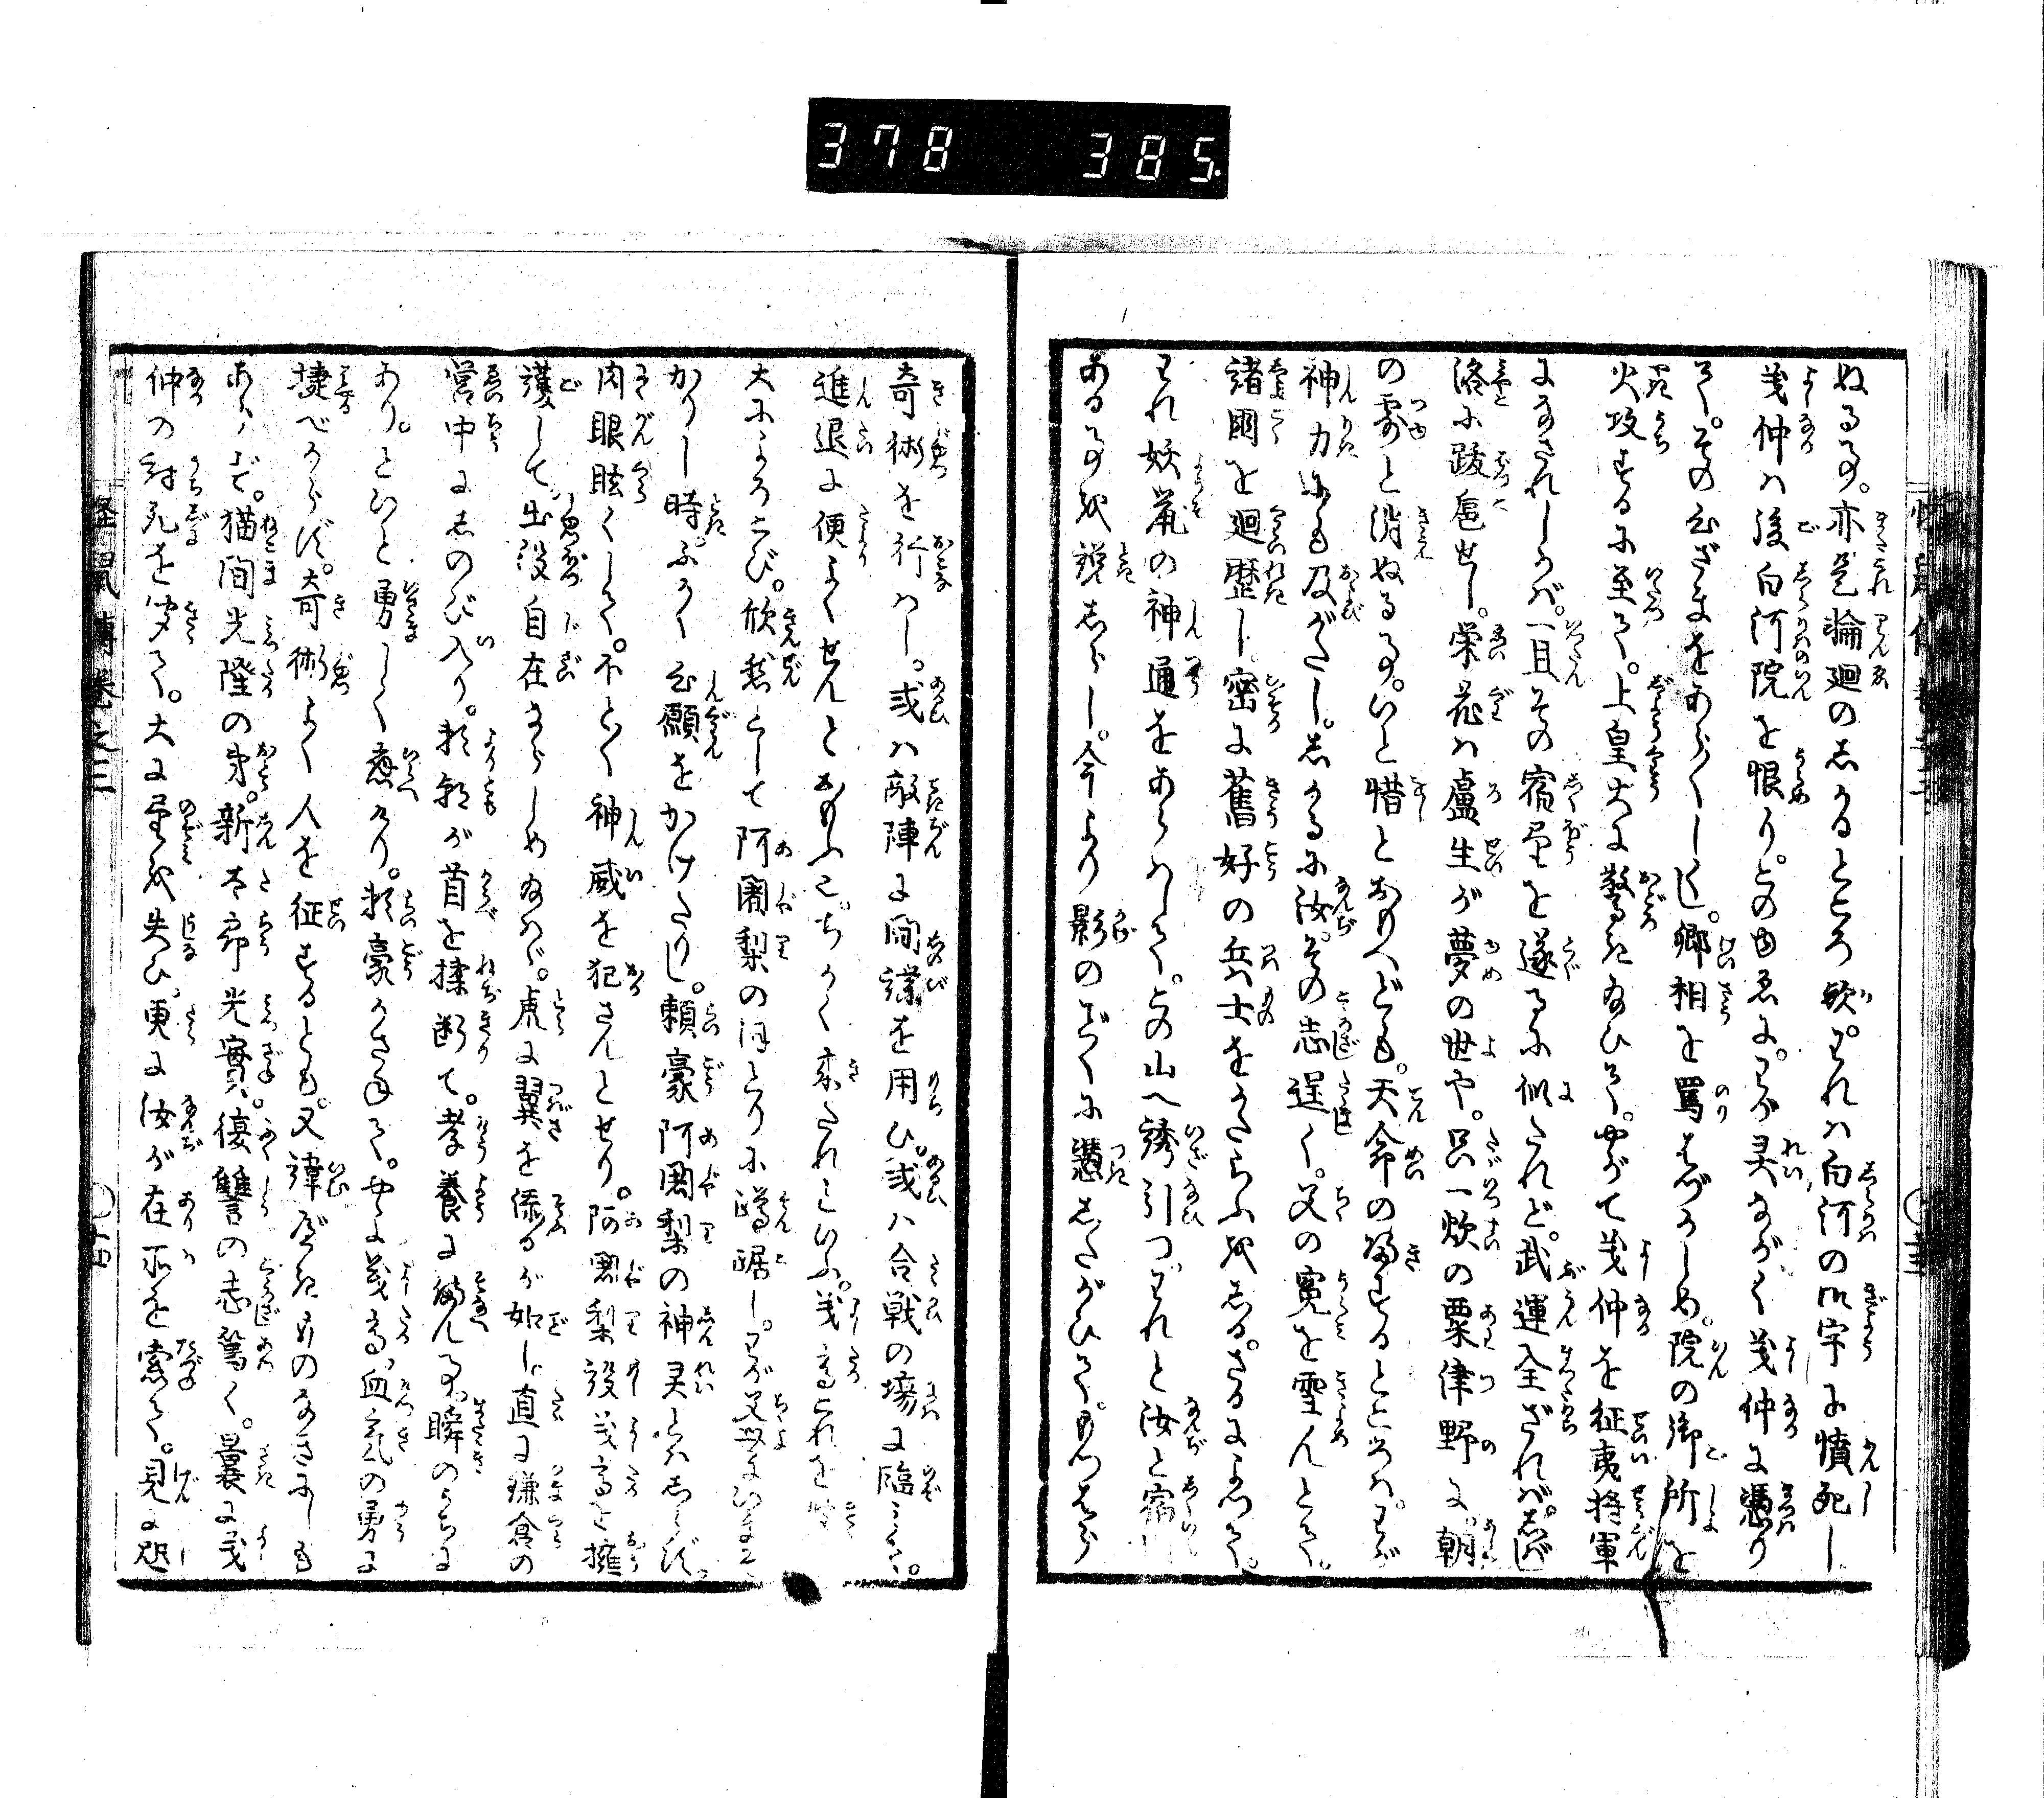 378 385
ぬる事。亦是輪廻のしかるところ歟。われは白河の御宇に憤死し
義仲は後白河院を恨り。この由ゑに。わが灵ながく義仲に憑り
て。その心ざまをあらくし。卿相を罵はづかしめ。院の御所を
火攻するに至て。上皇大に驚き給ひて。やがて義仲を征夷将軍
になされしかば。一旦その宿望を遂るに似たれど。武運全ざれば。しばし
洛に跋扈せし。栄花は盧生が夢の世や。只一炊の粟津野に。朝
の露と消ぬる事。いと惜とおもへども。天命の帰するところは。わが
神力にも及がたし。しかるに汝。その志逞く。父の寃を雪んとて。
諸国を廻歴し密に舊好の兵士をかたらふ我しる。さるによつて。
われ妖鼠の神通をあらはして。この山へ誘引つ。われと汝と宿
ある事を説しらし。今より影のごとくに憑したがひて。もつはら
奇術を行はし。或は敵陣に間諜を用ひ。或は合戦の場に臨みて。
進退に便よくせんとおもふ也。ちかく来たれといふ。義高これを聞
大によろこび。欣然として阿闍梨のほとりに蹲踞し。わが父母いまだ
かりし時。ふかく心願をかけたりし。頼豪阿闍梨の神灵とはしらず。
肉眼眩くして。不とく神威を犯さんとせり。阿闍梨設義高を擁
護して。出没自在ならしめ給はゞ。虎に翼を添るが如し。直に鎌倉の
営中にしのび入り。頼朝が首を揉断て。孝養に備ん事。瞬のうちに
あり。といと勇しく應けり。頼豪かさねて。やよ義高。血気の勇に
捷べからず。奇術よく人を征するとも。又禕べきものなきにしも
あらず。猫間光隆の弟。新太郎光實。復讐の志篤く。曩に義
仲の討死を聞て。大に望を失ひ。更に汝が在所を索て。見に処
怪鼠傳巻之三
十四